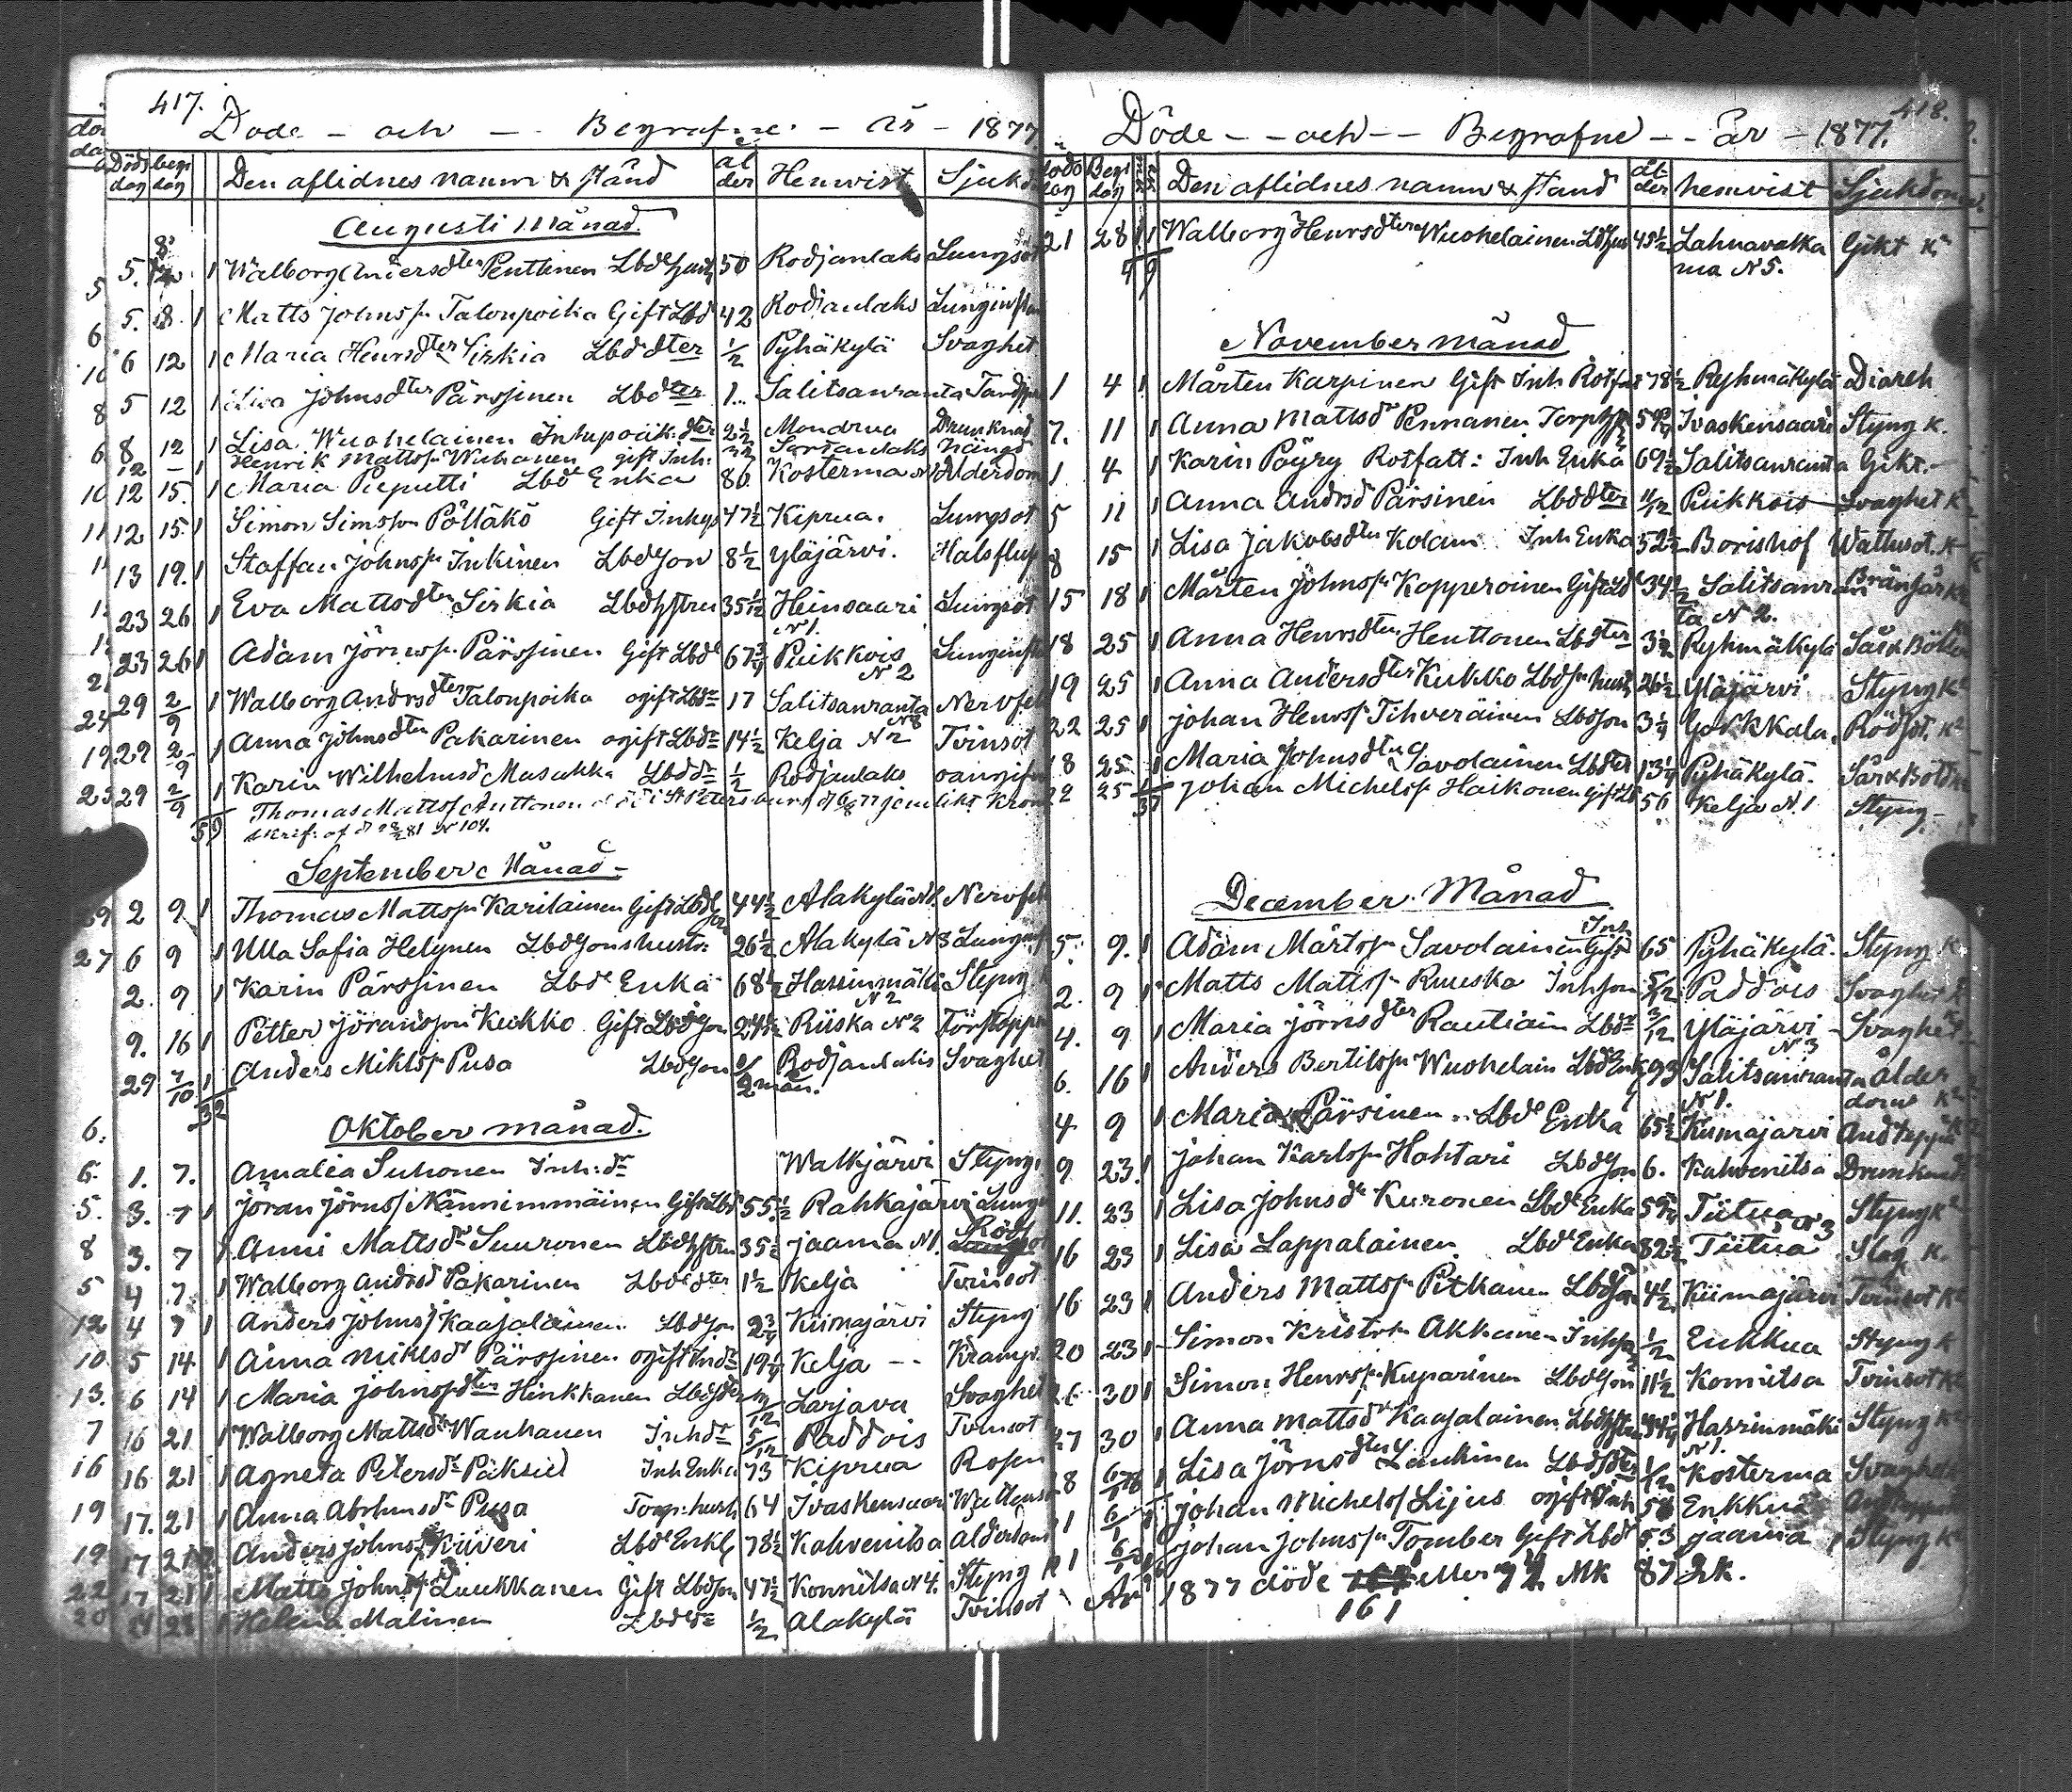 417.
Döde - och - Begrafne - År - 1877
Döds dag begr dag Den aflidnes namn & stånd ål der Hemvist Sjukd
Augusti Månad
5. 8 1 Walborg Andersdter Penttinen Lbdshust 50 Rodjanlaks Lungsot
5. 8. 1 Matts Johnss Talonpoika Gift Lbd 42 Rodjanlaks Lunginfl
6 12 1 Maria Henrsdter Sirkia Lbddter 1/2 Pyhäkylä Svaghet
5 12 1 Lisa Johnsdter Pärssinen Lbdter 1.. Salitsanranta
8 12 1 Lisa Wuohelainen 2 1/2 Mondrua Drunknad
12 - 1 Henrik Mattss Wuhanen gift Inh: Sortanlaks hängd
12 15. 1 Maria Pieputti Lbds Enka 86 Kosterma Ålderdom
12 15. 1 Simon Simsson Pölläkö Gift Inhys 47 1/2 Kiprua. Lungsot
13 19. 1 Staffan Johnss Inkinen Lbdsson 8 1/2 Yläjärvi. Halsfluss
23 26 1 Eva Mattsdter Sirkia Lbdhstru 35 1/12 Heinsaari N1. Lungsot
23 26 1 Adam Jörnss Pärssinen Gift Lbd 67 3/4 Puikkois N2 Lunginfl
29 2/9 1 Walborg Andrsdter Talonpoika ogift Lbdr 17 Salitsanranta N8 Nervfeb
29 2/9 1 Anna Johnsdter Pakarinen ogift Lbdr 14 1/2 Kelja N2 Tvinsot
29 2/9 1 Karin Wilhelmsd Musakka Lbddr 1/2 Rodjanlaks oangifven
Thomas Mattss Anttonen död i St Petersburg jemlikt
skrif. af d 23/2 81 N 104.
5 9
September Månad
2 9 1 Thomas Mattss Karilainen Gift Lbds son 44 1/2 Alakylä N1. Nervfeb
6 9 1 Ulla Sofia Helynen Lbdsonshustr: 26 1/2 Alakylä N3 Lungsot
2. 9 1 Karin Pärssinen Lbds Enka 68 1/2 Hassinmäki N2 Styng
9. 16 1 Petter Jöransson Kukko Gift Lbdsson 24 1/2 Riiska N2 Förstoppn
29 7/10 1 Anders Miklss Pusa Lbdsson 2 mån. Rodjanlaks Svaghet
3 2
Oktober månad.
1. 7. Amalia Suhonen Inh:dr Walkjärvi Styng
3. 7 1 Jöran Jörnss Nännimmäinen Gift Lbd 55 1/2 Rahkajärvi Lungs
3. 7 1 Anni Mattsdr Suuronen Lbdhstru 35 1/2 Jaama N1. Röds
4 7. 1 Walborg Andrsd Pakarinen Lbdsdter 1 1/2 Kelja Tvinsot
4 7 1 Anders Johnss Kaajalainen Lbdson 2 3/4 Kiimajärvi Styng
5 14 1 Anna Miklsdr Pärssinen ogift Indr 19 1/4 Kelja -- Kramp
6 14 1 Maria Johnssdter Hinkkanen Lbdsdter Larjava Svaghet
16 21 1 Walborg Mattsdr Wanhanen Inhdr 5/12 Paddois Tvinsot
16 21 1 Agneta Petersdr Päksiel Inh Enka 73 Kiprua Rosen
17. 21 1 Anna Abrhmsdr Pusa Torp:hust 64 Ivaskensaari Wattus
17 21 Anders Johnss Kiiveri Lbds Enkl 78 1/2 Kahvenitsa ålderdom
17 21 1 Matts Johnss Luukkanen Gift Lbdson 47 1/2 Konnitsa N4. Styng
28 1 Helena Malinen Lbddr 1/2 Alakylä Tvinsot
418.
Döde - - och - - Begrafne - - år - 1877.
Döds dag Begr dag Den aflidnes namn & stand ål der hemvist Sjukdom
21 28 1 Walborg Henrsdter Wuohelainen Lbdhus 45 1/2 Lahnavalkama N5. Gikt k.
9 9
November månad
1 4 1 Mårten Karpinen Gift Inh Rotfatt 78 1/2 Ryhmäkylä Diareh
7. 11 1 Anna Mattsdr Pennanen Torp 54 3/4 Ivaskensaari Styng k.
1 4 1 Karin Pöyry Rotfatt: Inh Enka 69 1/2 Salitsanranta Gikt.-
5 11 1 Anna Andrsd Pärsinen Lbddter 11/12 Puikkois Svaghet k
8 15 1 Lisa Jakobsdter Kolam Inh Enka 52 1/2 Borishof Wattusot. k
15 18 1 Mårten Johnss Kopperoinen Gift Lbd 34 1/2 Salitsanranta N2. Brännsår k
18 25 1 Anna Henrsdter Henttonen Lbdter 3 1/2 Ryhmäkylä Sår & Bölder
19 25 1 Anna Andersdter Kukko Lbdson hust 26 1/2 Yläjärvi Styng k
22 25 1 Johan Henrss Tihveräinen Lbdson 3 1/4 Golkkala. Rödsot. k
18 25 1 Maria Johnsdter Savolainen Lbdter 13 1/4 Pyhäkylä. Sår & Bölder
22 25 1 Johan Michelss Haikonen gift Lb 56 Kelja N.1 Styng-
3 7
December. Månad
5. 9. 1 Adam Mårtss Savolainen Inh Gift 65 Pyhäkylä. Styng k
2. 9 1 Matts Mattss Ruuska Inhson 5/12 Paddois Svaghet k
4. 9 1 Maria Jörnsdter Rautiain Lbdr 3/12 Yläjärvi N3 Svaghet
6. 16 1 Anders Bertilss Wuohelain Lbd Enkl 93 Salitsanranta N1. Ålderdom k
4 9 1 Maria Pärsinen.. Lbds Enka 65 1/2 Kiimajärvi Andtäppa k
9 23. 1 Johan Karlss Hahtari Lbdson 6. Kahvenitsa Drunknad
11. 23 1 Lisa Johnsdr Kuronen Lbds Enka 59 3/4 Tiitua N3 Styng k
16 23 1 Lisa Lappalainen Lbds Enka 82 1/2 Tiitua Slag k.
16 23 1 Anders Mattss Pitkanen Lbdson 4 1/2 Kiimajärvi Tvinsot k
20 23 1 Simon Kristss Akkanen Inhson 1/2 Enkkua Styng k
26 30 1 Simon Henrss Kuparinen Lbdson 11 1/2 Konnitsa Tvinsot k
27 30 1 Anna Mattsdr Kaajalainen Lbdhstru 44 1/4 Hassinmäki N1. Styng k
28 6/1 78 1 Lisa Jörnsdter Laukinen Lbdsdter 1/12 Kosterma Svaghet
6/1 Johan Michelss Lijus ogift Inh Enkkua
6/1 Johan Johnss Tomber Gift Lbd 53 Jaama Styng k
År 1877 döde 161 eller 74 Mk 87 Qk.